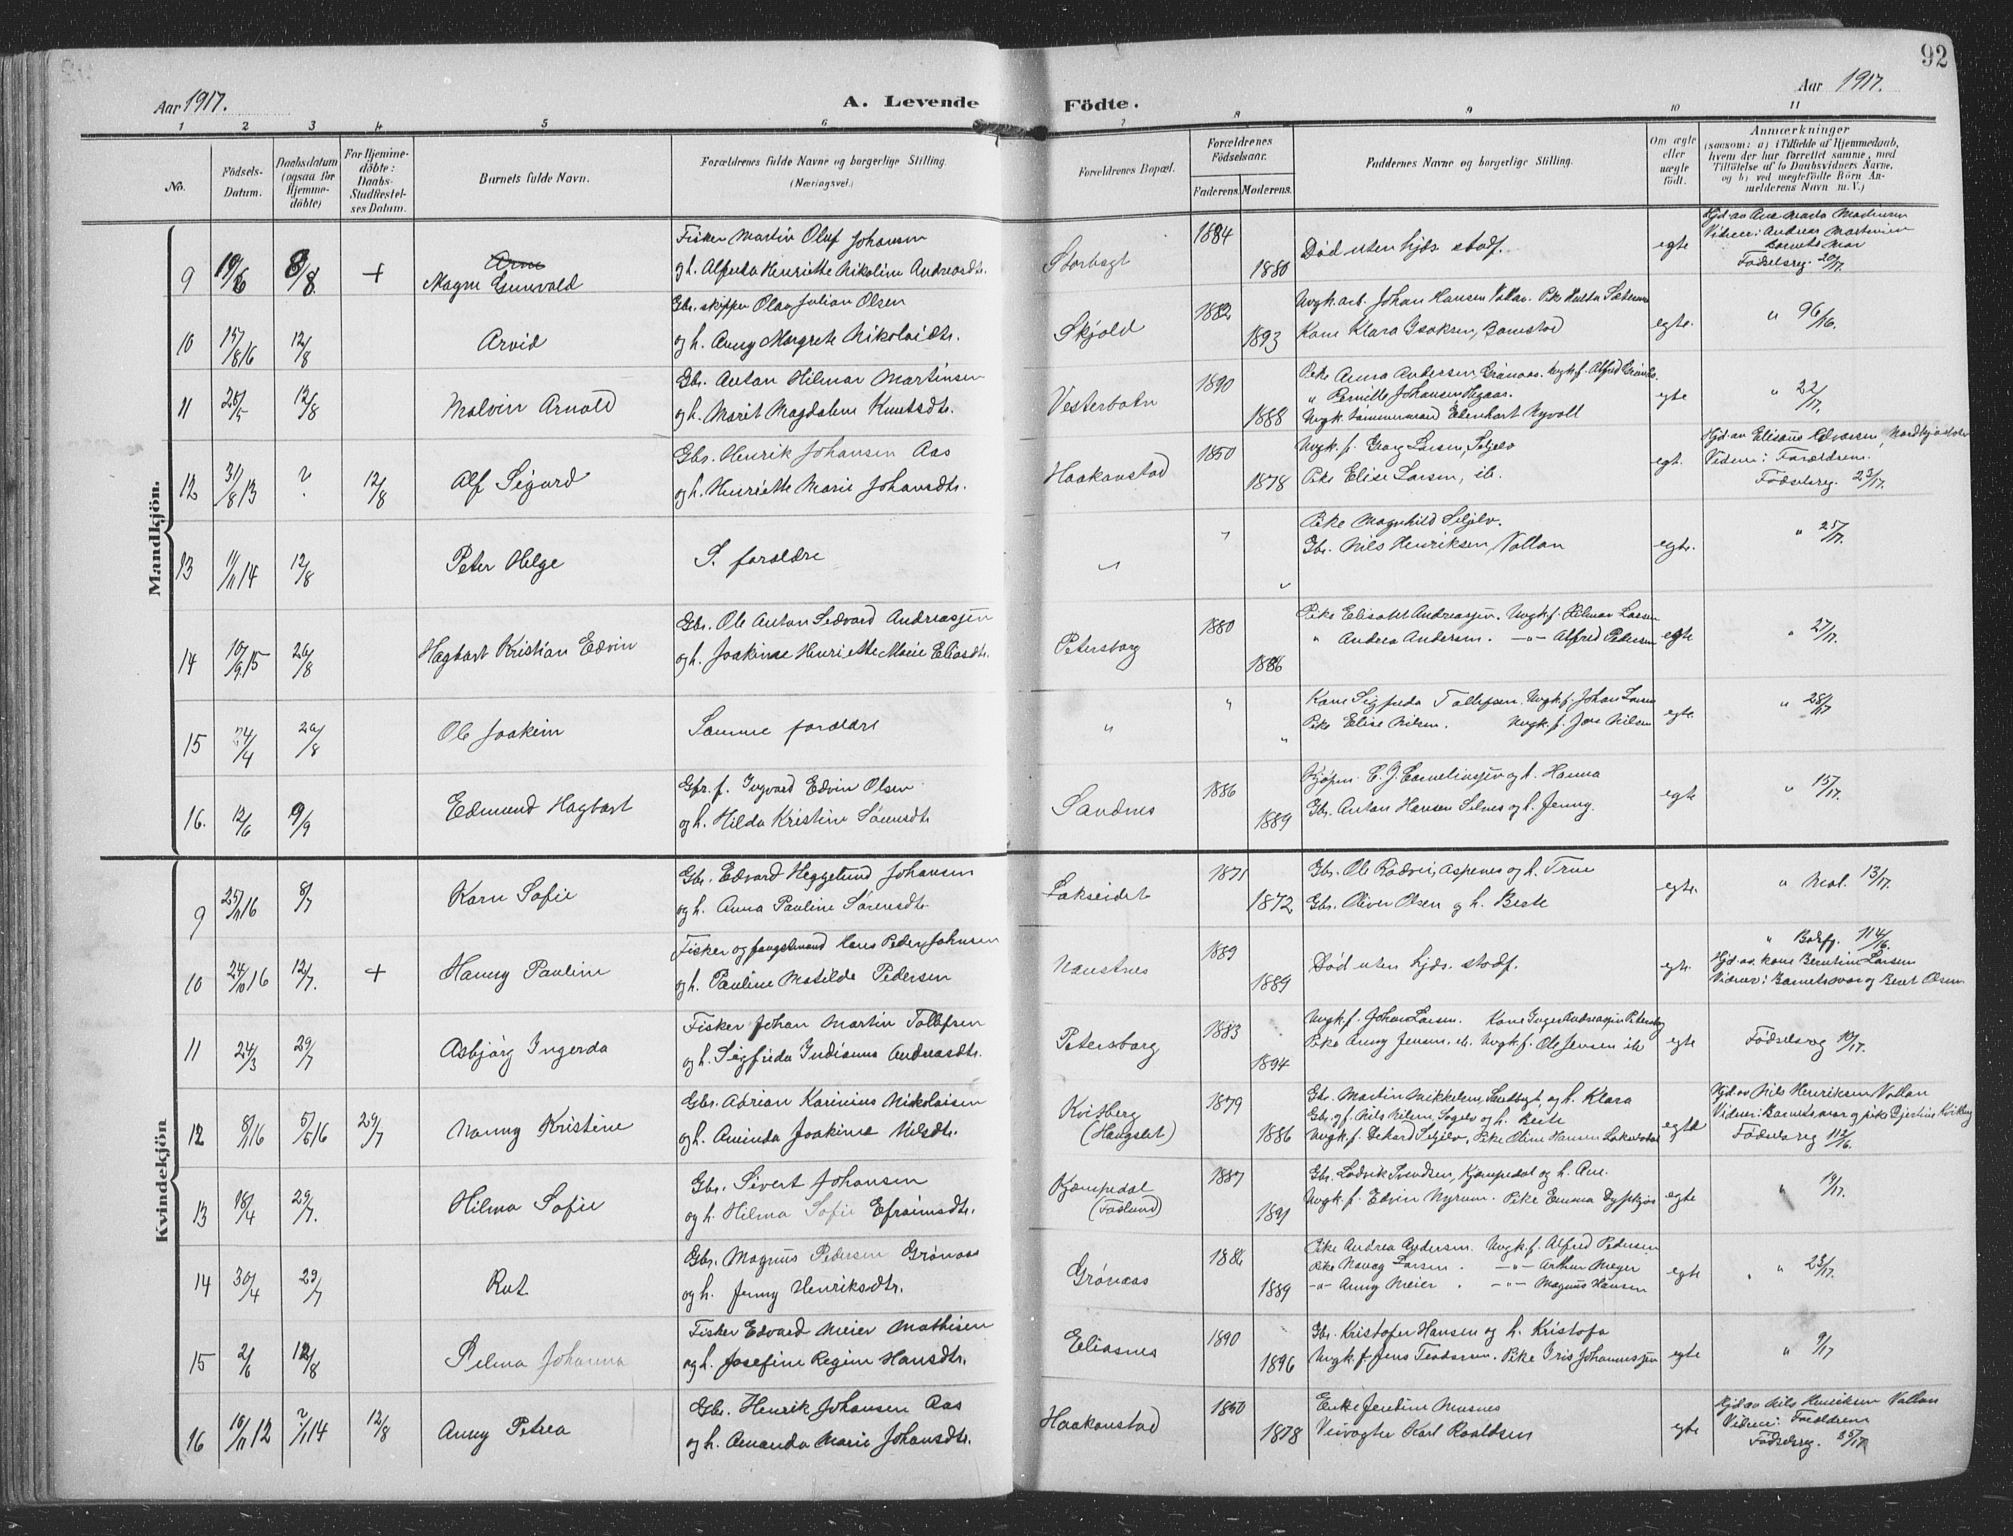 92
Aar 1917.
A. Levende Födte.
Aar 1917.
1 2 3 4 5 6 7 8 9 10 11
No.
Födsels-Datum.
Daabsdatum (ogsaa for Hjemme-döbte)
For Hjemme-döbte: Daabs-Stadfæstel-ses Datum.
Barnets fulde Navn.
Forældrenes fulde Navne og borgerlige Stilling. (Næringsvei.)
Forældrenes Bopæl.
Forældrenes Födselsaar.
Faderens. Moderens.
Faddernes Navne og borgerlige Stilling.
Om ægte eller uægte födt.
Anmærkninger
(saasom: a) i Tilfælde af Hjemmedaab, hvem der har forrettet samme, med Tilföielse af to Daabsvidners Navne, og b) ved uægtefödte Börn An-melderens Navn m. V.)
Mandkjön.
9 19/6 8/8 + Arne Magne Gunvald
Fisker Martin Oluf Johansen
og h. Alfreda Henriette Nikoline Andreasdtr.
Storbogt 1884 1880
Död uten hjds. stadf.
egte
Hjd. av Ane Marta Martinsen
Vidner: Andreas Martinsen
Barnets Mor
Födselsreg. 20/17.
10 15/8 16 12/8 Arvid
Gbr. skipper Olav Julian Olsen
og h. Anny Margrete Nikolaidtr.
Skjold 1882 1893
Ungk. arb. Johan Hansen Vollan. Pike Hulda Sætermo
Kone Klara Isaksen, Bamstad
egte.
" 96/16.
11 25/5 12/8 Malvin Arnold
Gbr. Anton Hilmar Martinsen
og h. Marit Magdalena Knutsdtr.
Vesterbotn 1890 1888
Pike Anna Andersen Grönaas. Ungk. f. Alfred Grönaas.
" Pernille Johansen
Ungk. tömmermand Edenhart Nyvoll
egte
" 22/17.
12 31/8 13 ? 12/8 Alf Sigurd
Gbr. Henrik Johansen Aas
og h. Henriette Marie Johansdtr.
Haakonstad 1850 1878
Ungk. f. Georg Larsen, Seljelv
Pike Elise Larsen, ib.
egt.
Hjd. av Elisæus Edvardsen, Nordkjosbotn
Vidner: Forældrene.
Födselsreg. 23/17.
13 11/11 14 12/8 Peter Helge
S. forældre
" " "
Pike Magnhild Seljelv.
Gbr. Nils Henriksen, Vollan
egte.
" 25/17.
14 10/9 15 26/8 Hagbart Kristian Edvin
Gbr. Ole Anton Sedvard Andreassen
og h. Joakime Henriette Marie Eliasdtr.
Petersborg 1880 1886
Pike Elisabet Andreassen. Ungk. f. Hilmar Larsen
" Andrea Andersen. —"— Alfred Pedersen
egte
" 27/17.
15 24/4 26/8 Ole Joakim
Samme forældre
" " "
Kone Sigfrida Tollefsen. Ungk. f. Johan Larsen
Pike Elise Nilsen. Ungk. f. Jens Nilsen
egte
" 28/17
16. 12/6 9/9 Edmund Hagbart
Gbr. f. Ingvard Edvin Olsen
og h. Hilda Kristine Sörensdtr.
Sandnes 1886 1889
Kjöpm. E. J. Corneliussen og h. Hanna
Gbr. Anton Hansen Selnes og h. Jenny.
egte
" 15/17.
Kvindekjön
9 25/11 16 8/7 Karen Sofie
Gbr. Edvard Heggelund Johansen
og h. Anna Pauline Sörensdtr.
Lakseidet 1871 1872
Gbr. Ole Rödvei, Aspenes og h. Trine
Gbr. Oliver Olsen og h. Berte
egte.
" Mal. 13/17.
10 24/10 16 12/7. + Hanny Pauline
Fisker og fangstmand Hans Peder Johnsen
og h. Pauline Matilde Pedersen
Naustnes 1889 1889
Död uten hjds. stadf.
egte.
" Balsfj. 114/16.
Hjd. av kone Berntine Larsen
Vidner: Barnets mor og Beret Olsen
11 24/3 29/7 Asbjörg Ingerda
Fisker Johan Martin Tollefsen
og h. Sigfrida Indianna Andreasdtr.
Petersborg 1883 1894
Ungk. f. Johan Larsen. Kone Inger Andreassen Petersborg
Pike Anny Jensen. ib. Ungk. f. Ole Jensen ib
egte
Födselsreg 10/17.
12 8/1 16 5/5 16 29/7 Nanny Kristine
Gbr. Adrian Karinius Nikolaisen
og h. Aminda Joakime Nilsdtr.
Kvitberg (Haugslet) 1879 1886
Gbr. Martin Mikkelsen, Sandbugt, og h. Klara
Gbr. og f. Nils Nilsen, Sagelv og h. Berte
Ungk. f. Dehard Seljelv, Pike Oline Hansen Laksvatn
egte
Hjd. av Nils Henriksen Vollan
Vidner: Barnets mor og pike
Födselsreg 112/16.
13 18/4 29/7. Hilma Sofie
Gbr. Sivert Johansen
og h. Hilma Sofie Efraimsdtr.
Kjæmpedal (Fodlund) 1887 1891
Gbr. Lodvik Svendsen, Kjæmpedal og h. Ane.
Ungk. f. Edvin Nyrum. Pike Emma
egte
" 19/17.
14 30/4 29/7 Rut
Gbr. Magnus Pedersen Grönaas
og h. Jenny Henriksdtr.
Grönaas 1886 1889
Pike Andrea Andersen. Ungk. f. Alfred Pedersen
Pike Nanag Larsen. —"— Arthur Meyer
—"— Anny Meier. —"— Magnus Hansen
egte
" " 23/17.
15 2/6 12/8 Selma Johanna
Fisker Edvard Meier Mathisen
og h. Josefine Regine Hansdtr.
Eliasnes 1890 1896
Gbr. Kristofer Hansen og h. Kristofa
Ungk. f. Jens Teodorsen. Pike Iris Johannessen
egte
" 9/17
16 16/11 12 ?/1 14 12/8 Anny Petrea
Gbr. Henrik Johansen Aas
og h. Amanda Marie Johansdtr.
Haakonstad 1850 1878
Enke Jentine Masnes
Veivogter Karl Roaldsen
egte
Hjd. av Nils Henriksen Vollan
Vidner: Forældrene
Födselsreg. 35/17.